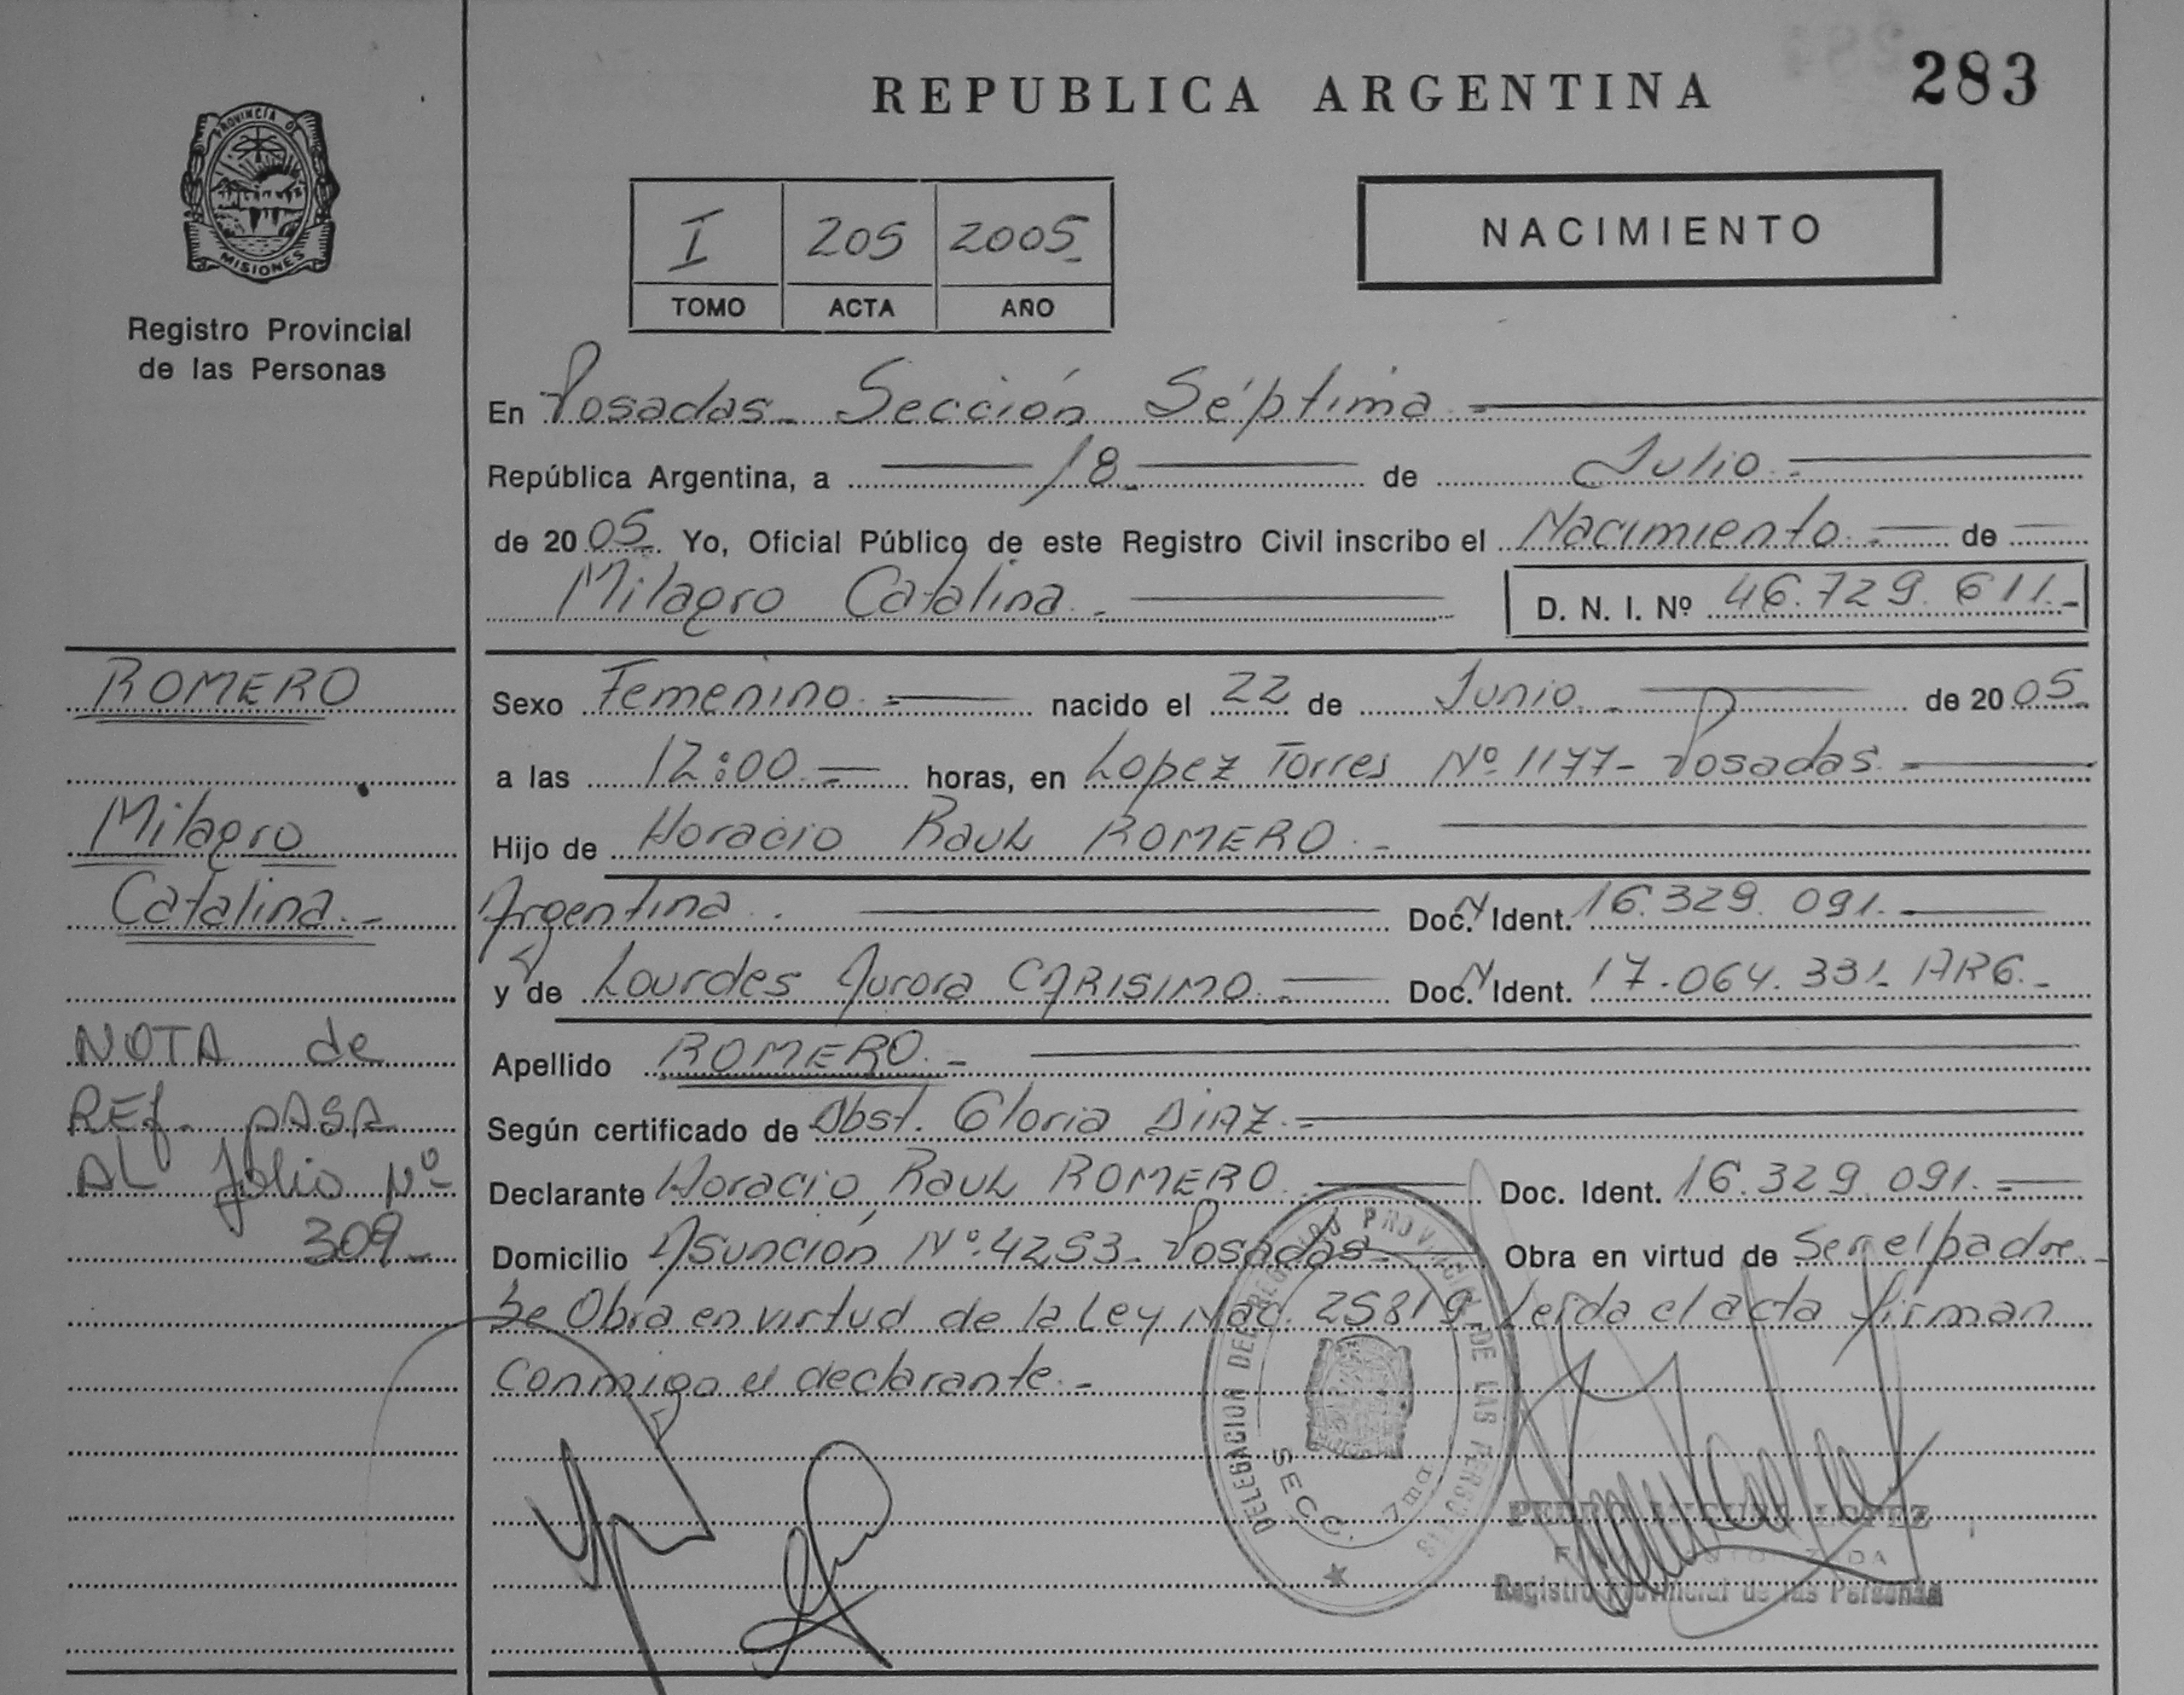 REPUBLICA ARGENTINA
283
PROVINCIA D
MISIONES
Registro Provincial
de las Personas
I 205 2005
TOMO ACTA AÑO
NACIMIENTO
En Posadas Sección Séptima
República Argentina, a 18 de Julio
de 2005 Yo, Oficial Público de este Registro Civil inscribo el Nacimiento de
Milagro Catalina D. N. I. Nº 46.729.611
ROMERO
Milagro
Catalina
NOTA de
REf. pASA
AL folio Nº
309
Sexo Femenino nacido el 22 de Junio de 2005
a las 12:00 horas, en Lopez Torres Nº 1177- Posadas
Hijo de Horacio Raul ROMERO
Argentina Doc. N Ident. 16.329.091
y de Lourdes Aurora CARISIMO Doc. N Ident. 17.064.331 ARG.
Apellido ROMERO
Según certificado de Obst. Gloria DIAZ
Declarante Horacio Raul ROMERO Doc. Ident. 16.329.091
Domicilio Asunción Nº 4253 Posadas Obra en virtud de Ser el padre
Se Obra en virtud de la Ley Nac. 25819 Leida el acta firman
conmigo el declarante
DELEGACION DEL REGISTRO PROVINCIAL DE LAS PERSONAS
SECC. 7ma
PEDRO MIGUEL LOPEZ
Registro Provincial de las Personas